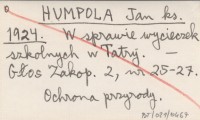 HUMPOLA Jan ks.
1924. W sprawie wycieczek
szkolnych w Tatry. —
Głos Zakop. 2, nr 25-27.
Ochrona przyrody.